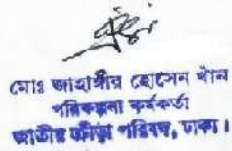 মোঃ জাহাঙ্গীর হোসেন খান
পরিকল্পনা কর্মকর্তা
জাতীয় ক্রীড়া পরিষদ, ঢাকা।